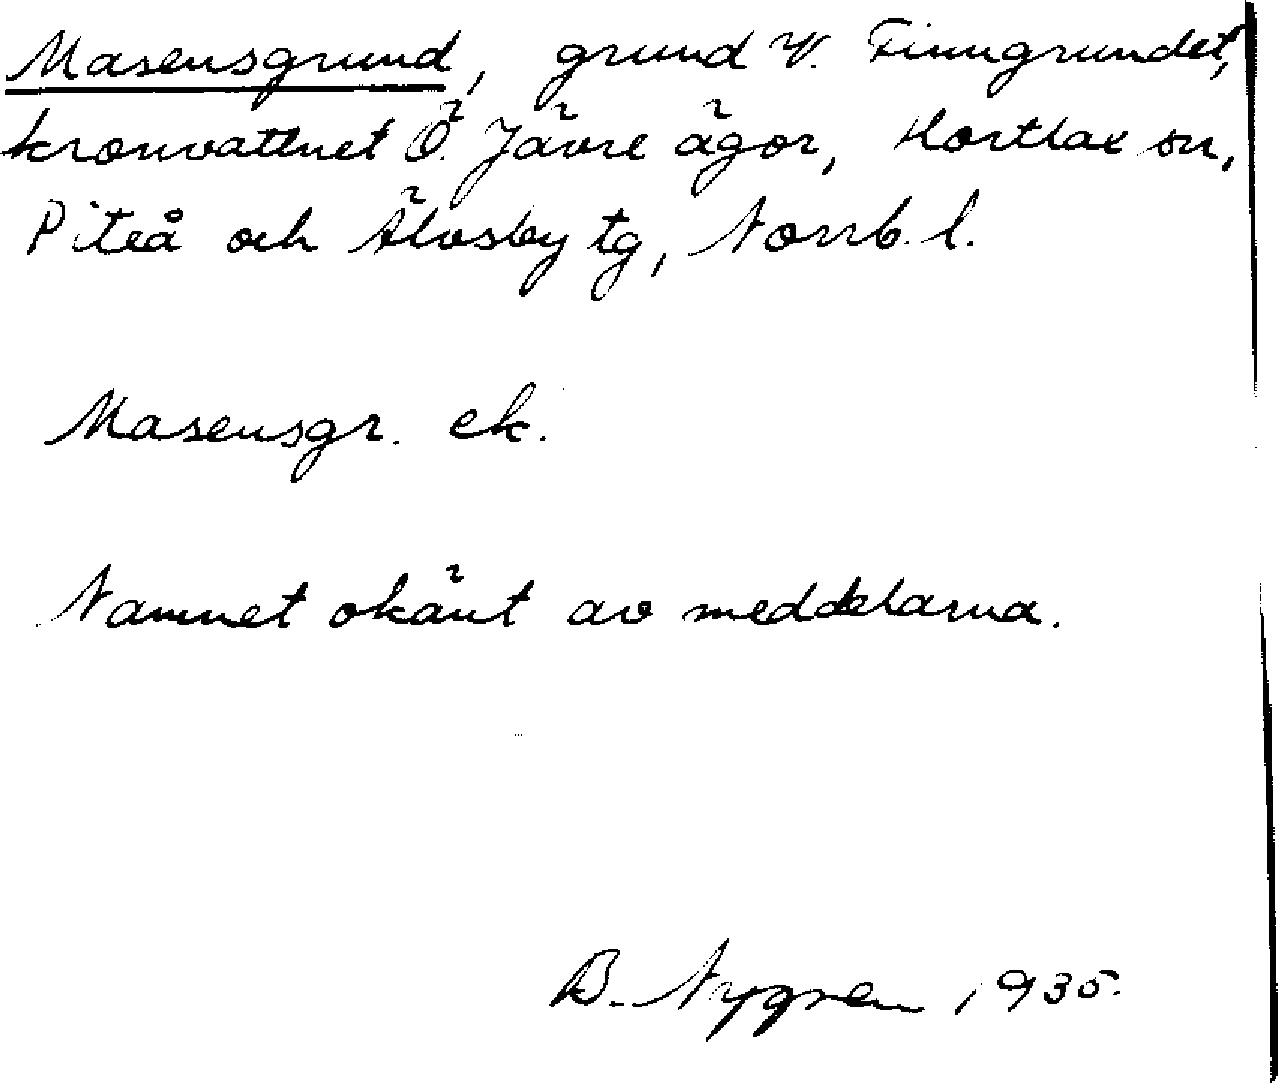 Masensgrund, grund V. Finngrundet,
kronvattnet Ö. Jävre ägor, Hortlax sn,
Piteå och Älvsby tg, Norrb. l.
Masensgr. ek.
Namnet okänt av meddelarna.
B. Nygren 1935.